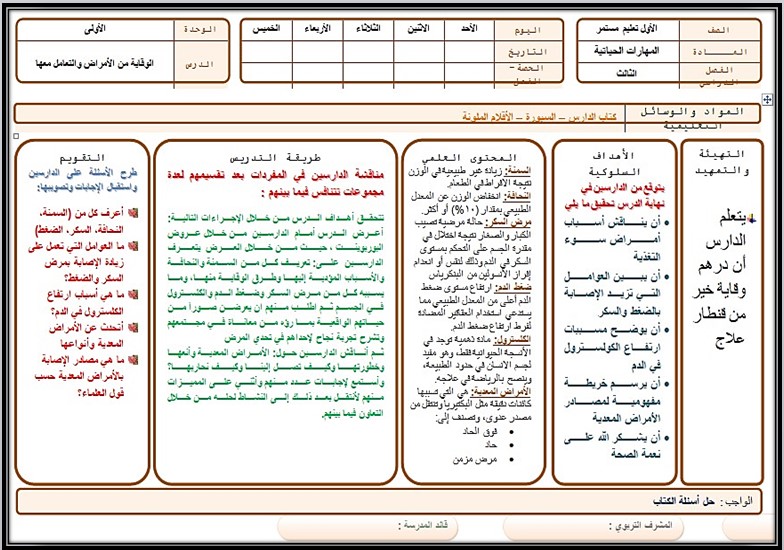 الصف
الأول تعليم مستمر
المـــــــادة
المهارات الحياتية
الفصل الدراسي
الثالث
اليوم
الأحد
الاثنين
الثلاثاء
الأربعاء
الخميس
التاريخ
الحصة –
الفصل
الوحدة
الأولى
الدرس
الوقاية من الأمراض والتعامل معها
المواد والوسائل
التعليمية
كتاب الدارس – السبورة – الأقلام الملونة
التهيئة
والتمهيد
يتعلم
الدارس
أن درهم
وقاية خير
من قنطار
علاج
الأهداف
السلوكية
يتوقع من الدارسين في
نهاية الدرس تحقيق ما يلي
أن يناقش أسباب
أمراض سوء
التغذية
أن يبين العوامل
التي تزيد الإصابة
بالضغط والسكر
أن يوضح مسببات
ارتفاع الكولسترول
في الدم
أن يرسم خريطة
مفهومية لمصادر
الأمراض المعدية
أن يشكر الله على
نعمة الصحة
المحتوى العلمي
السمنة: زيادة غير طبيعية في الوزن
نتيجة الافراط في الطعام.
النحافة: انخفاض الوزن عن المعدل
الطبيعي بمقدار (١٠%) أو أكثر.
مرض السكر: حالة مرضية تصيب
الكبار والصغار نتيجة اختلال في
مقدرة الجسم على التحكم بمستوى
السكر في الدم ذلك لنقص أو انعدام
إفراز الأنسولين من البنكرياس
ضغط الدم: ارتفاع مستوى ضغط
الدم أعلى من المعدل الطبيعي مما
يستدعي استخدام العقاقير المضادة
لفرط ارتفاع ضغط الدم.
الكلسترول: مادة دهنية توجد في
الأنسجة الحيوانية فقط، وهو مفيد
لجسم الانسان في حدود الطبيعية،
وينصح بالرياضة في علاجه.
الأمراض المعدية: هي التي تسببها
كائنات دقيقة مثل البكتيريا وتنتقل من
مصدر عدوى، وتصنف إلى:
فوق الحاد
حاد
مرض مزمن
طريقة التدريس
مناقشة الدارسين في المفردات بعد تقسيمهم لعدة
مجموعات تتنافس فيما بينهم :
تتحقق أهداف الدرس من خلال الإجراءات التالية:
أعرض الدرس أمام الدارسين من خلال عروض
البوربوينت ، حيث من خلال العرض يتعرف
الدارسين على: تعريف كل من السمنة والنحافة
والأسباب المؤدية إليها وطرق الوقاية منها، وما
يسببه كل من مرض السكر وضغط الدم والكلسترول
في الجسم ثم اطلب منهم ان يعرضن صوراً من
حياتهم الواقعية بما رؤه من معاناة في مجتمعهم
وتشرح تجربة نجاح لإحداهم في تحدي المرض
ثم أناقش الدارسين حول: الأمراض المعدية وأنعها
وخطورتها وكيف تصل إلينا وكيف نحاربها؟
وأستمع لإجابات عدد منهم وأثني على المميزات
منهم لأنتقل بعد ذلك إلى النشاط لحله من خلال
التعاون فيما بينهم.
التقويم
طرح الأسئلة على الدارسين
واستقبال الإجابات وتصويبها:
أعرف كل من (السمنة،
النحافة، السكر، الضغط)
ما العوامل التي تعمل على
زيادة الإصابة بمرض
السكر والضغط؟
ما هي أسباب ارتفاع
الكلسترول في الدم؟
أتحدث عن الأمراض
المعدية وأنواعها
ما هي مصادر الإصابة
بالأمراض المعدية حسب
قول العلماء؟
الواجب : حل أسئلة الكتاب
المشرف التربوي :
قائد المدرسة :